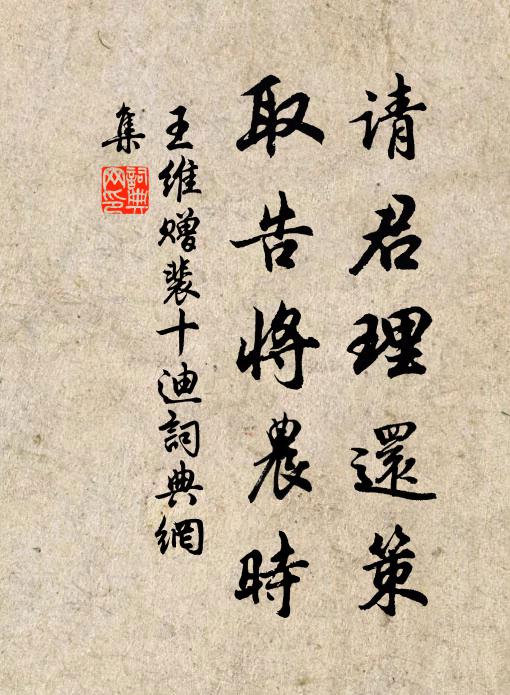 请君理還策
取告將農時
王维赠裴十迪詞典網
集
詞典
网印